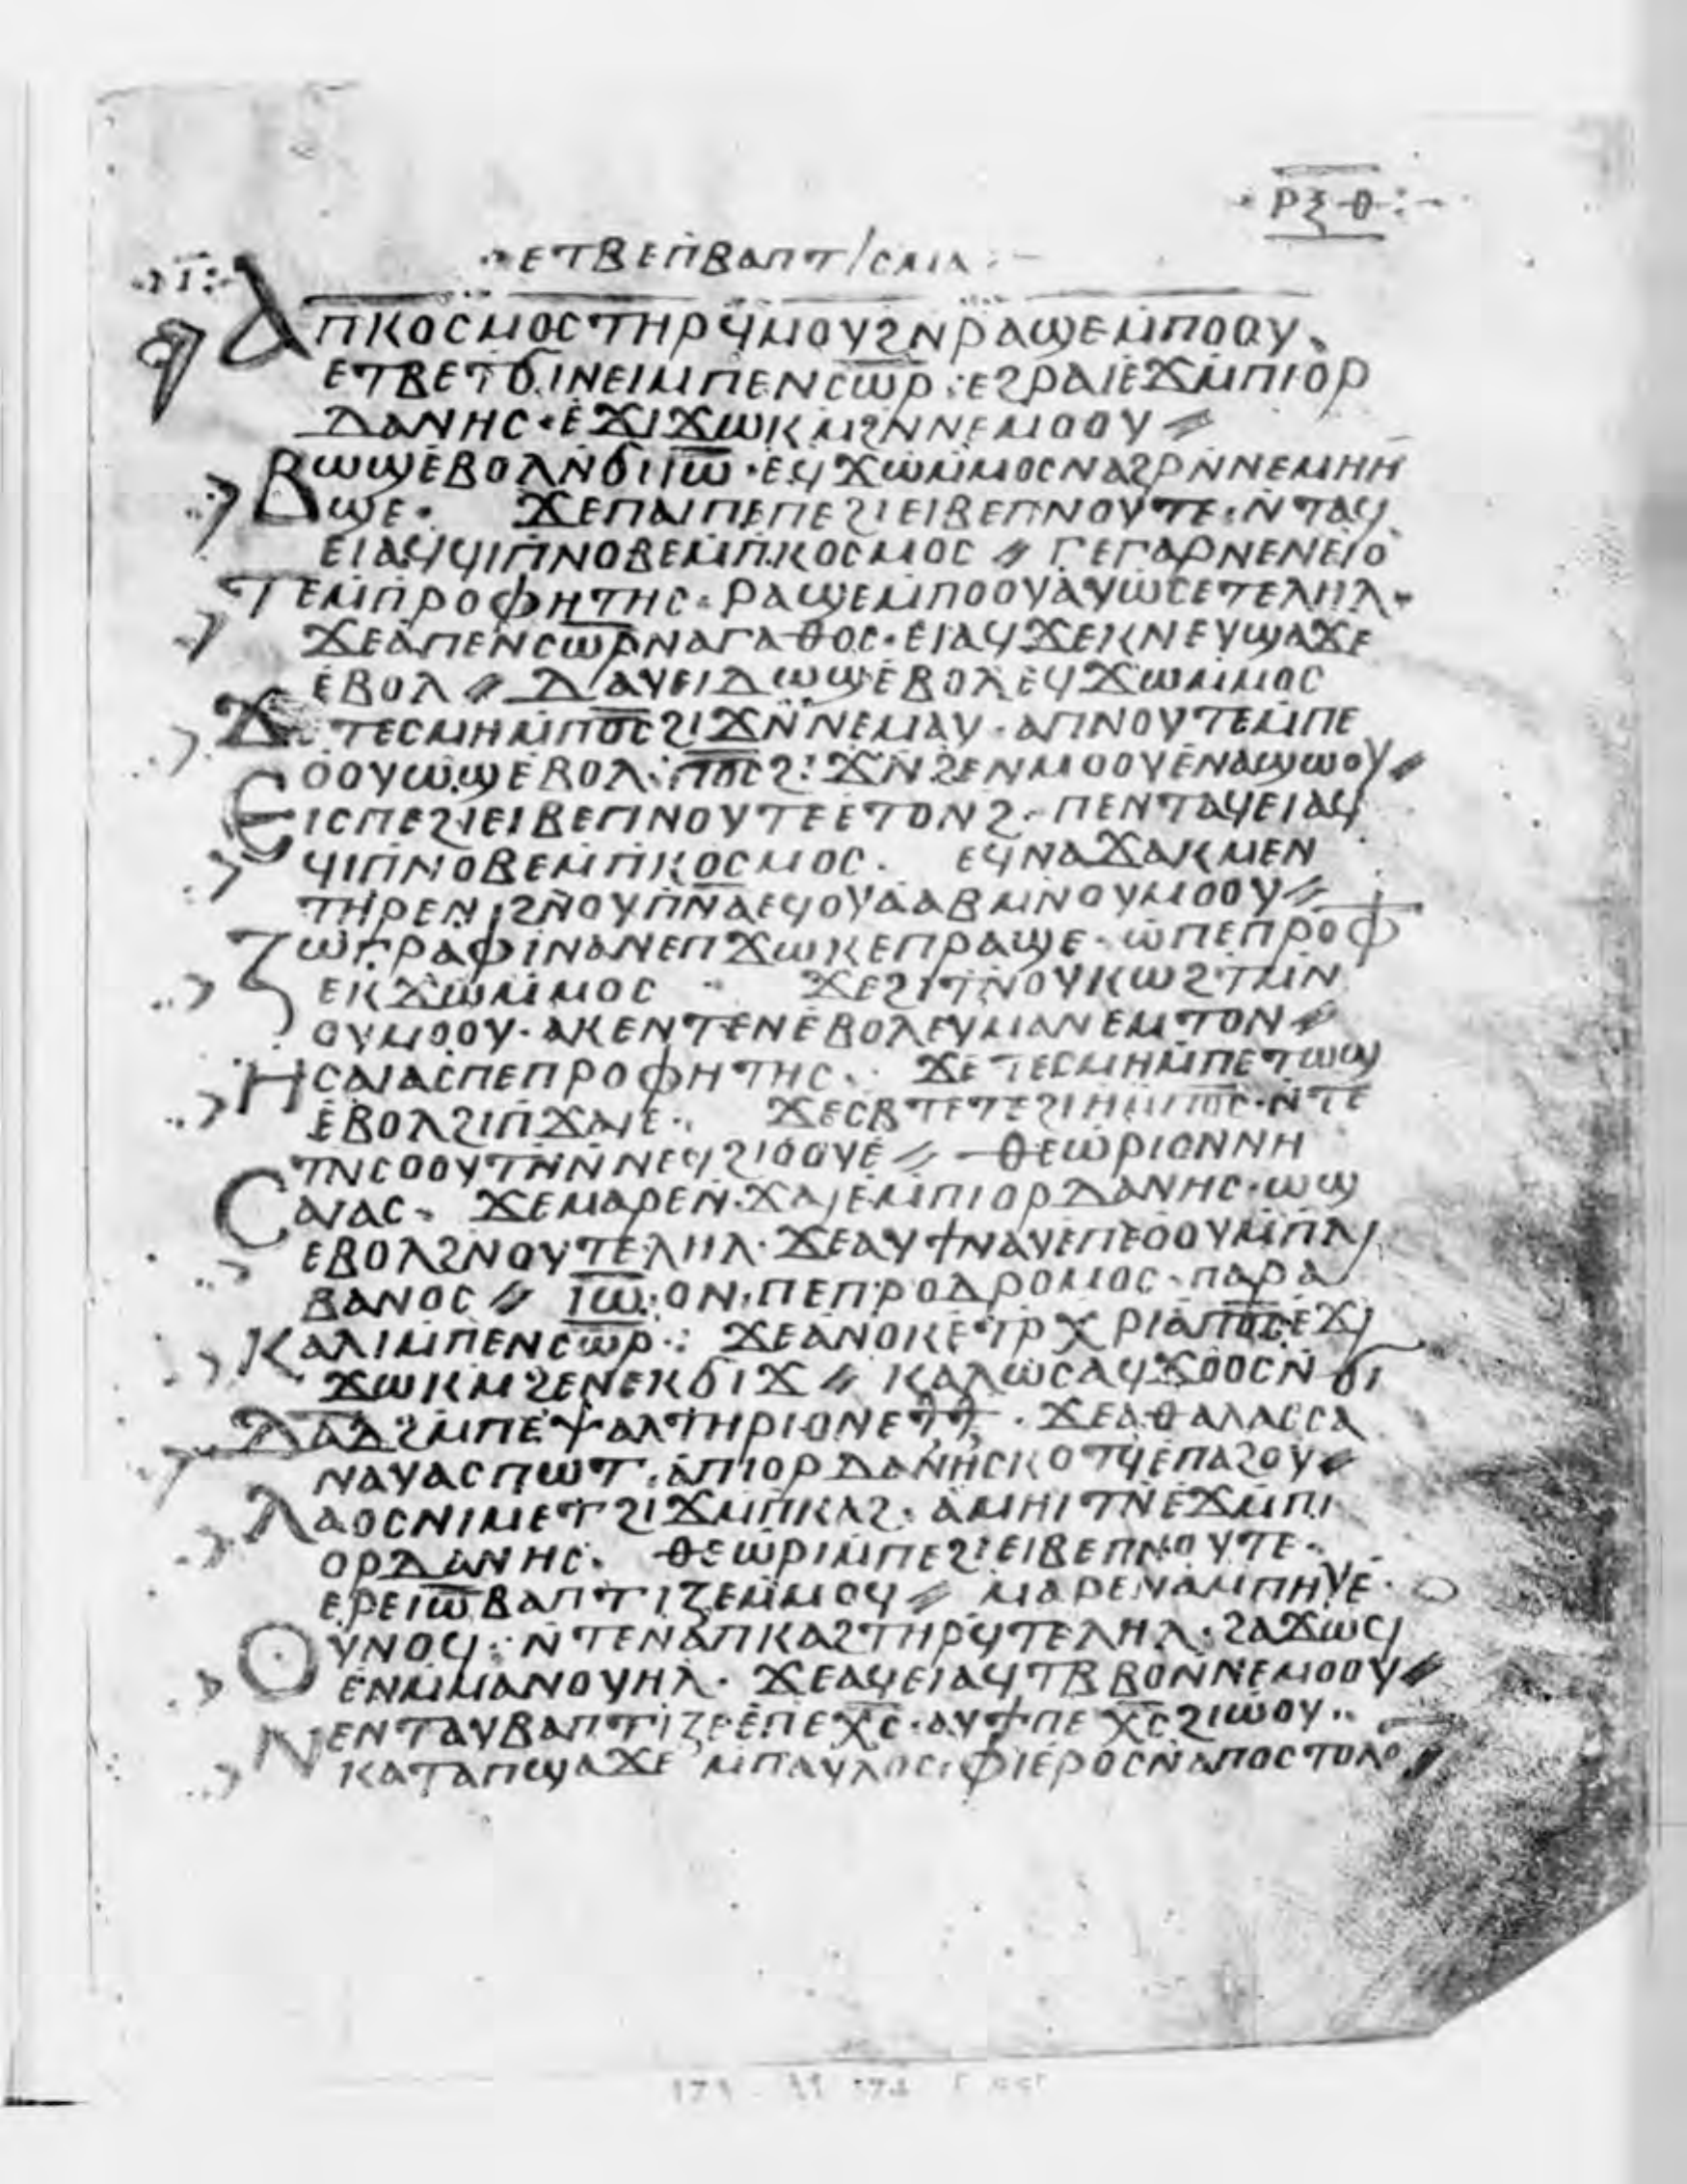 ⲣⲝⲑ
ⲉⲧⲃⲉⲡⲃⲁⲡⲧⲓⲥⲙⲁ
ⲁⲡⲕⲟⲥⲙⲟⲥⲧⲏⲣϥⲙⲟⲩϩⲛⲣⲁϣⲉⲙⲡⲟⲟⲩ
ⲉⲧⲃⲉⲧϭⲓⲛⲉⲓⲙⲡⲉⲛⲥⲱ̅ⲣ̅·ⲉϩⲣⲁⲓⲉϫⲙⲡⲓⲟⲣ
ⲇⲁⲛⲏⲥ·ⲉϫⲓϫⲱⲕⲙϩⲛⲛⲉⲙⲟⲟⲩ⳿//
ⲃⲱϣⲉⲃⲟⲗⲛϭⲓⲓ̅ⲱ̅·ⲉϥϫⲱⲙⲙⲟⲥⲛⲁϩⲣⲛⲛⲉⲙⲏⲏ
ϣⲉ· ϫⲉⲡⲁⲓⲡⲉⲡⲉϩⲓⲉⲓⲃⲉⲡⲛⲟⲩⲧⲉ·ⲛⲧⲁϥ
ⲉⲓⲁϥϥⲓⲡⲛⲟⲃⲉⲙⲡⲕⲟⲥⲙⲟⲥ // ⲅⲉⲅⲁⲣⲛⲉⲛⲉⲓⲟ
ⲧⲉⲙⲡⲣⲟⲫⲏⲧⲏⲥ·ⲣⲁϣⲉⲙⲡⲟⲟⲩⲁⲩⲱⲥⲉⲧⲉⲗⲏⲗ·
ϫⲉⲁⲡⲉⲛⲥⲱ̅ⲣ̅ⲛⲁⲅⲁⲑⲟⲥ·ⲉⲓⲁϥϫⲉⲕⲛⲉⲩϣⲁϫⲉ
ⲉⲃⲟⲗ // ⲇⲁⲩⲉⲓⲇⲱϣⲉⲃⲟⲗⲉϥϫⲱⲙⲙⲟⲥ
ϫⲉ ⲧⲉⲥⲙⲏⲙⲡⲟ̅ⲥ̅ϩⲓϫⲛⲛⲉⲙⲁⲩ·ⲁⲡⲛⲟⲩⲧⲉⲙⲡⲉ
ⲟⲟⲩⲱϣⲉⲃⲟⲗ·ⲡⲟ̅ⲥ̅ϩⲓϫⲛϩⲉⲛⲙⲟⲟⲩⲉⲛⲁϣⲱⲟⲩ//
ⲉⲓⲥⲡⲉϩⲓⲉⲓⲃⲉⲡⲛⲟⲩⲧⲉⲉⲧⲟⲛϩ·ⲡⲉⲛⲧⲁϥⲉⲓⲁϥ
ϥⲓⲡⲛⲟⲃⲉⲙⲡⲕⲟⲥⲙⲟⲥ· ⲉϥⲛⲁϫⲁⲕⲙⲉⲛ
ⲧⲏⲣⲉⲛϩⲛⲟⲩⲡ̅ⲛ̅ⲁ̅ⲉϥⲟⲩⲁⲁⲃⲙⲛⲟⲩⲙⲟⲟⲩ//
ⲍⲱⲅⲣⲁⲫⲓⲛⲁⲛⲉⲡϫⲱⲕⲉⲡⲣⲁϣⲉ·ⲱⲡⲉⲡⲣⲟⲫ
ⲉⲕϫⲱⲙⲙⲟⲥ ϫⲉϩⲓⲧⲛⲟⲩⲕⲱϩⲧⲙⲛ
ⲟⲩⲙⲟⲟⲩ·ⲁⲕⲉⲛⲧⲉⲛⲉⲃⲟⲗⲉⲩⲙⲁⲛⲉⲙⲧⲟⲛ//
ⲏⲥⲁⲓⲁⲥⲡⲉⲡⲣⲟⲫⲏⲧⲏⲥ· ϫⲉⲧⲉⲥⲙⲏⲙⲡⲉⲧⲱϣ
ⲉⲃⲟⲗϩⲓⲡϫⲁⲓⲉ· ϫⲉⲥⲃⲧⲉⲧⲉϩⲓⲏⲙⲡⲟ̅ⲥ̅·ⲛⲧⲉ
ⲧⲛⲥⲟⲟⲩⲧⲛⲛⲛⲉϥϩⲓⲟⲟⲩⲉ // ⲑⲉⲱⲣⲓⲟⲛⲛⲏ
ⲥⲁⲓⲁⲥ· ϫⲉⲙⲁⲣⲉⲛϫⲁⲓⲉⲙⲡⲓⲟⲣⲇⲁⲛⲏⲥ·ⲱϣ
ⲉⲃⲟⲗϩⲛⲟⲩⲧⲉⲗⲏⲗ·ϫⲉⲁⲩϯⲛⲁⲩⲉⲡⲉⲟⲟⲩⲙⲡⲗⲓ
ⲃⲁⲛⲟⲥ // ⲓ̅ⲱ̅·ⲟⲛ·ⲡⲉⲡⲣⲟⲇⲣⲟⲙⲟⲥ·ⲡⲁⲣⲁ
ⲕⲁⲗⲓⲙⲡⲉⲛⲥⲱ̅ⲣ̅: ϫⲉⲁⲛⲟⲕⲉⲧⲣⲭⲣⲓⲁⲡⲟ̅ⲥ̅ⲉϫⲓ
ϫⲱⲕⲙϩⲉⲛⲉⲕϭⲓϫ // ⲕⲁⲗⲱⲥⲁϥϫⲟⲟⲥⲛϭⲓ
ⲇⲁ̅ⲇ̅ϩⲙⲡⲉⲯⲁⲗⲧⲏⲣⲓⲟⲛ · ϫⲉⲁⲑⲁⲗⲁⲥⲥⲁ
ⲛⲁⲩⲁⲥⲡⲱⲧ·ⲁⲡⲓⲟⲣⲇⲁⲛⲏⲥⲕⲟⲧϥⲉⲡⲁϩⲟⲩ//
ⲗⲁⲟⲥⲛⲓⲙⲉⲧϩⲓϫⲙⲡⲕⲁϩ·ⲁⲙⲏⲓⲧⲛⲉϫⲙⲡⲓ
ⲟⲣⲇⲁⲛⲏⲥ· ⲑⲉⲱⲣⲓⲙⲡⲉϩⲓⲉⲓⲃⲉⲡⲛⲟⲩⲧⲉ·
ⲉⲣⲉⲓ̅ⲱ̅ⲃⲁⲡⲧⲓⲍⲉⲙⲙⲟϥ // ⲙⲁⲣⲉⲛⲁⲙⲡⲏⲩⲉ·
ⲟⲩⲛⲟϥ·ⲛⲧⲉⲛⲁⲡⲕⲁϩⲧⲏⲣϥⲧⲉⲗⲏⲗ·ϩⲁϫⲱϥ
ⲉⲛⲙⲙⲁⲛⲟⲩⲏⲗ· ϫⲉⲁϥⲉⲓⲁϥⲧⲃⲃⲟⲛⲛⲉⲙⲟⲟⲩ//
ⲛⲉⲛⲧⲁⲩⲃⲁⲡⲧⲓⲍⲉⲉⲡⲉⲭ̅ⲥ̅·ⲁⲩϯⲡⲉⲭ̅ⲥ̅ϩⲓⲱⲟⲩ··
ⲕⲁⲧⲁⲡϣⲁϫⲉⲙⲡⲁⲩⲗⲟⲥ·ⲫⲓⲉⲣⲟⲥⲛⲁⲡⲟⲥⲧⲟⲗⲟ//